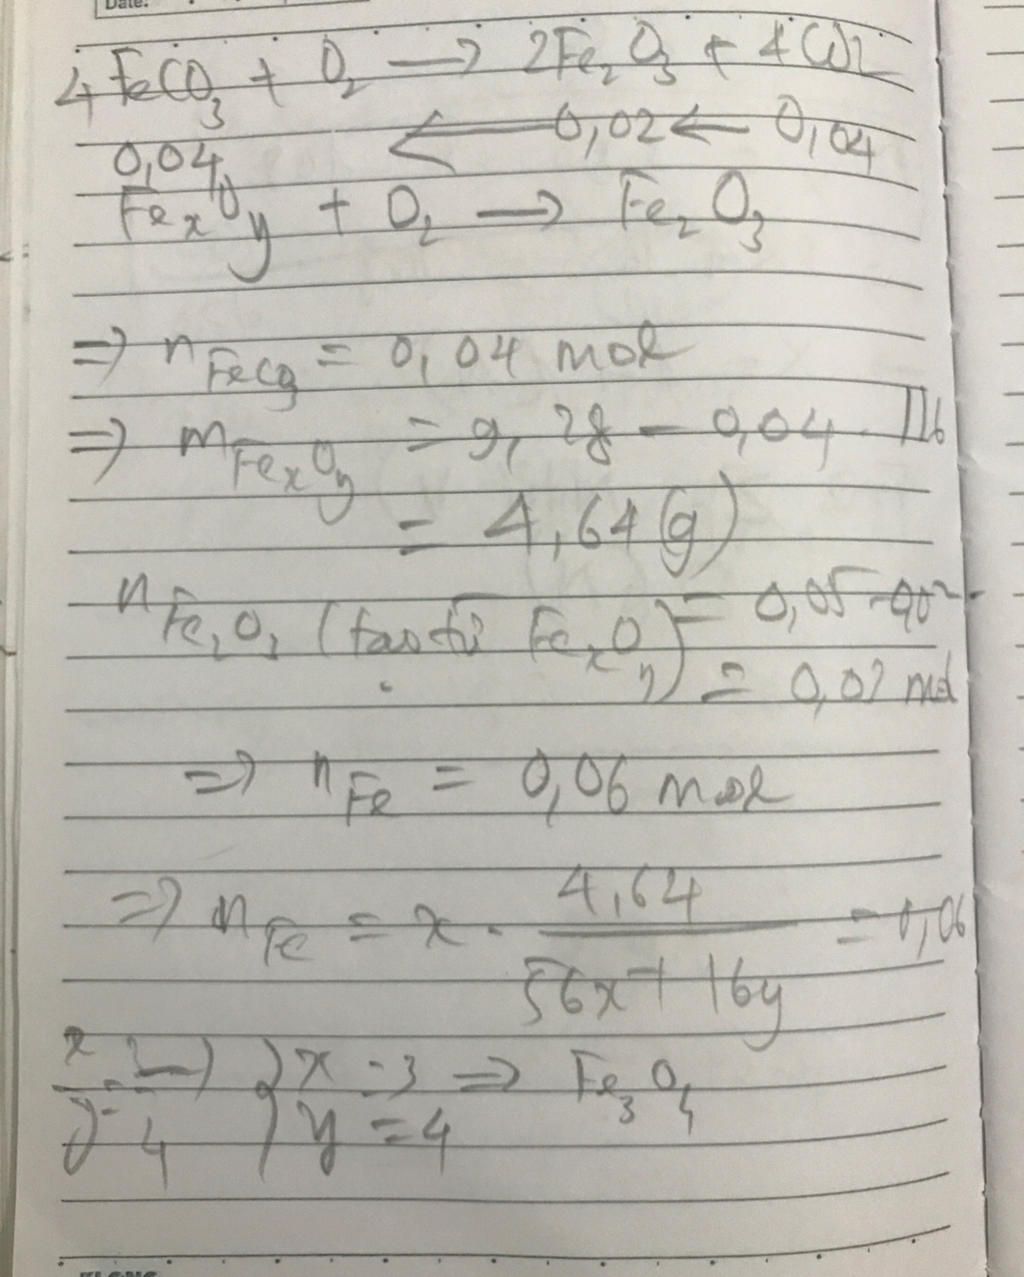 Date:
4FeCO3 + O2 → 2Fe2O3 + 4CO2
0,04 ← 0,02 ← 0,04
FexOy + O2 → Fe2O3
=> nFeCO3 = 0,04 mol
=> mFexOy = 9,28 - 0,04. 116
= 4,64 (g)
nFe2O3 (tạo từ FexOy) = 0,05 - 0,02
= 0,03 mol
=> nFe = 0,06 mol
=> nFe = x. 4,64 / (56x + 16y) = 0,06
x/y = 3/4 => x = 3 => Fe3O4
y = 4